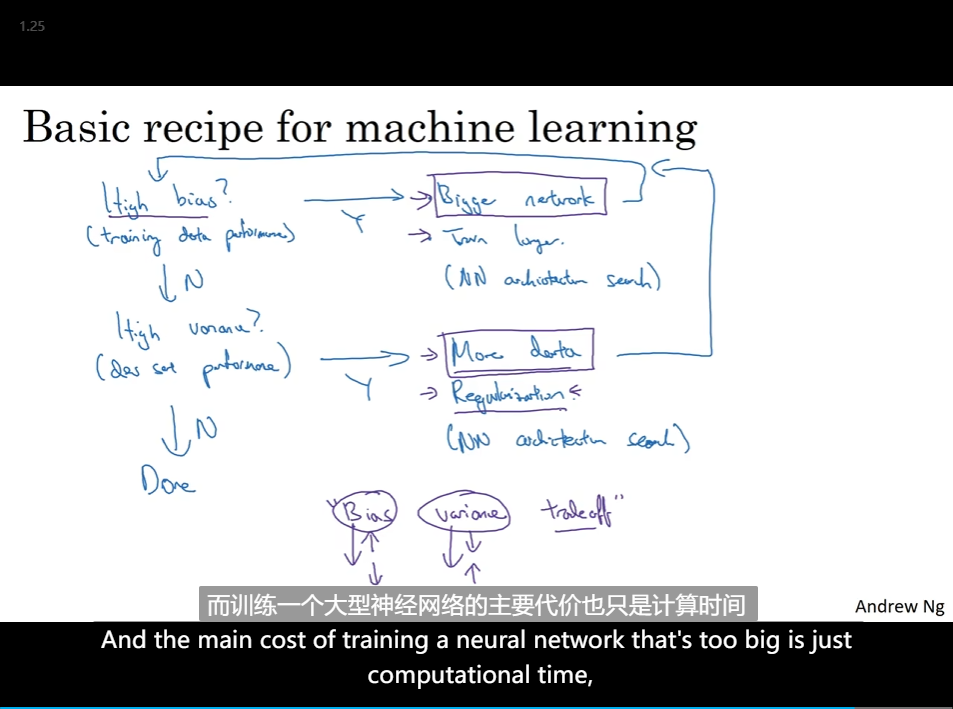 1.25
Basic recipe for machine learning
High bias?
Y
Bigge network
(training data performance)
Train longer.
N
(NN architecture search)
High variance?
(dev set performance)
Y
More data
Regularization
N
(NN architecture search)
Done
"Bias variance tradeoff"
而训练一个大型神经网络的主要代价也只是计算时间
Andrew Ng
And the main cost of training a neural network that's too big is just
computational time,